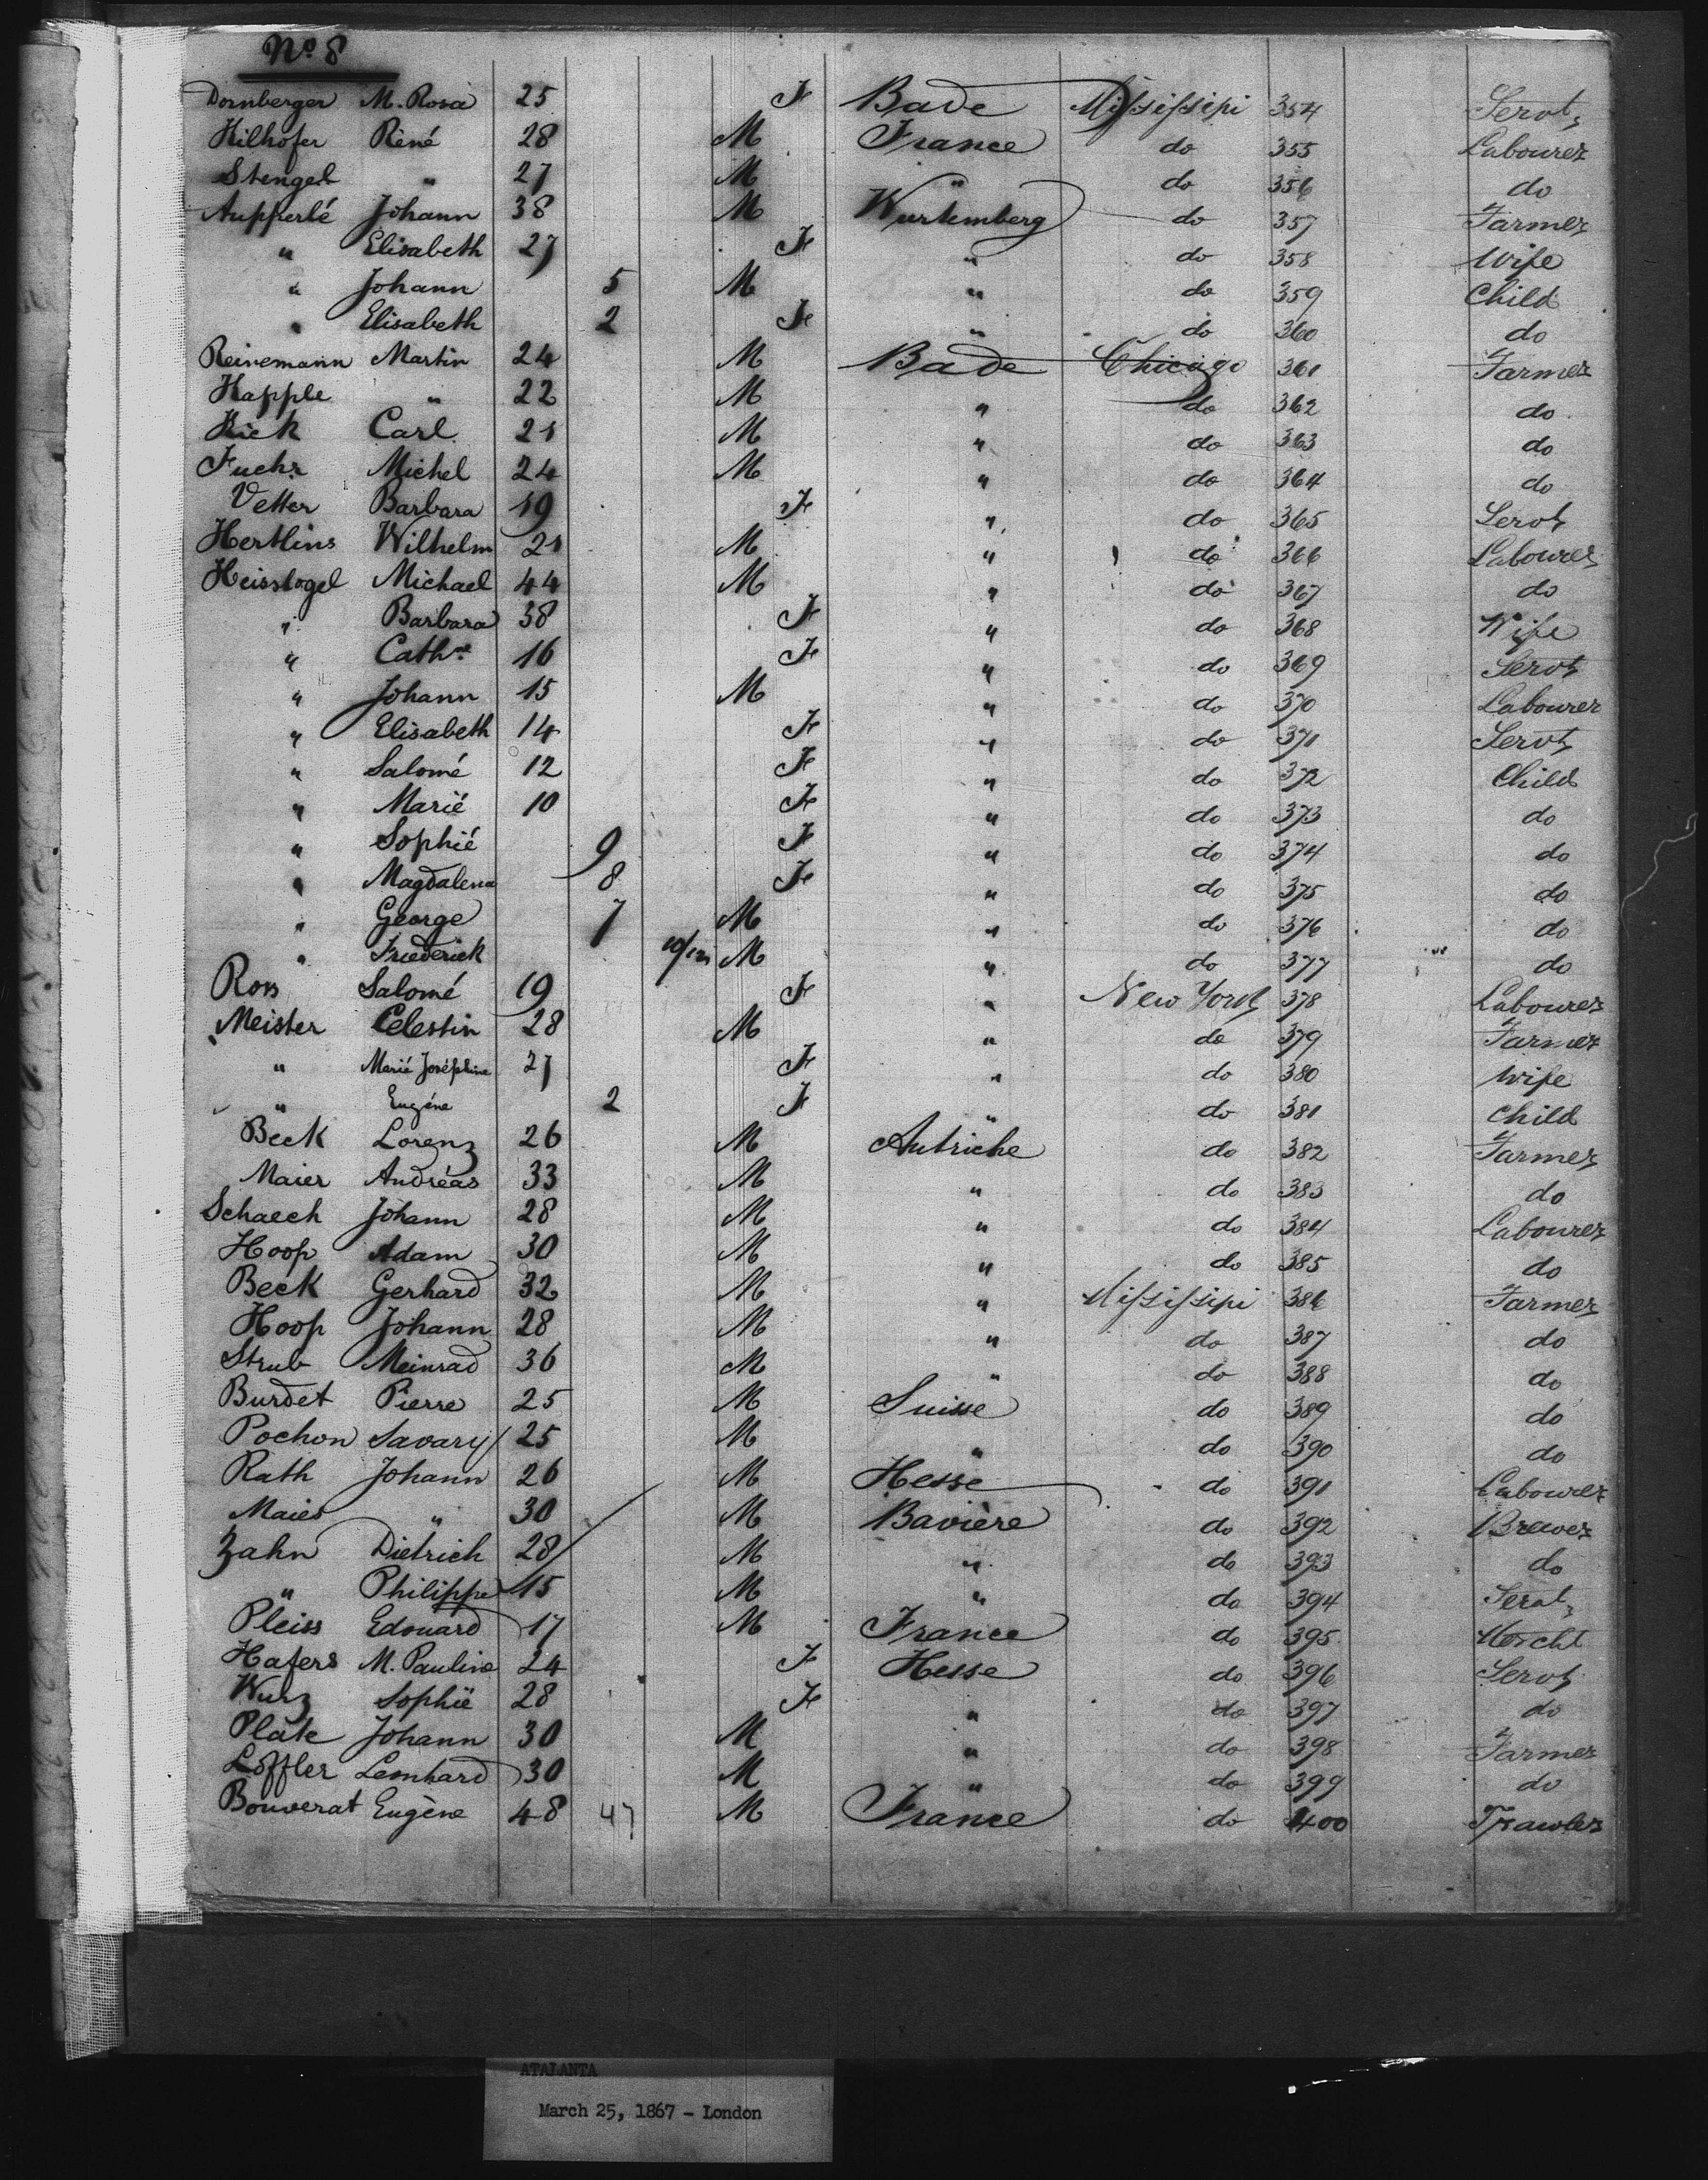 No. 8
Dornberger M. Rosa 25 F Bade Missisipi 354 Servt
Hilhofer Réné 28 M France do 355 Labourer
Stengel " 27 M " do 356 do
Aupperlé Johann 38 M Wurtemberg do 357 Farmer
" Elisabeth 27 F " do 358 Wife
" Johann 5 M " do 359 Child
" Elisabeth 2 F " do 360 do
Reinemann Martin 24 M Bade Chicago 361 Farmer
Happle " 22 M " do 362 do
Kick Carl 21 M " do 363 do
Fuchs Michel 24 M " do 364 do
Vetter Barbara 19 F " do 365 Servt
Hertlins Wilhelm 21 M " do 366 Labourer
Heisstogel Michael 44 M " do 367 do
" Barbara 38 F " do 368 Wife
" Cathne 16 F " do 369 Servt
" Johann 15 M " do 370 Labourer
" Elisabeth 14 F " do 371 Servt
" Salomé 12 F " do 372 Child
" Marié 10 F " do 373 do
" Sophié 9 F " do 374 do
" Magdalena 8 F " do 375 do
" George 7 M " do 376 do
" Friederick 10/12 M " do 377 do
Ross Salomé 19 F " New York 378 Labourer
Meister Celestin 28 M " do 379 Farmer
" Marié Joséphine 27 F " do 380 Wife
" Eugéne 2 F " do 381 Child
Beck Lorenz 26 M Autriche do 382 Farmer
Maier Andréas 33 M " do 383 do
Schaech Johann 28 M " do 384 Labourer
Hoop Adam 30 M " do 385 do
Beck Gerhard 32 M " Missisipi 386 Farmer
Hoop Johann 28 M " do 387 do
Strub Meinrad 36 M " do 388 do
Burdet Pierre 25 M Suisse do 389 do
Pochon Savary 25 M " do 390 do
Rath Johann 26 M Hesse do 391 Labourer
Maier " 30 M Bavière do 392 Brewer
Zahn Dietrich 28 M " do 393 do
" Philippe 15 M " do 394 Servt
Pleiss Edouard 17 M France do 395 Mercht
Hafers M. Pauline 24 F Hesse do 396 Servt
Wurz Sophië 28 F " do 397 do
Plate Johann 30 M " do 398 Farmer
Löffler Leonhard 30 M " do 399 do
Bouverat Eugène 48 47 M France do 400
ATALANTA
March 25, 1867 - London